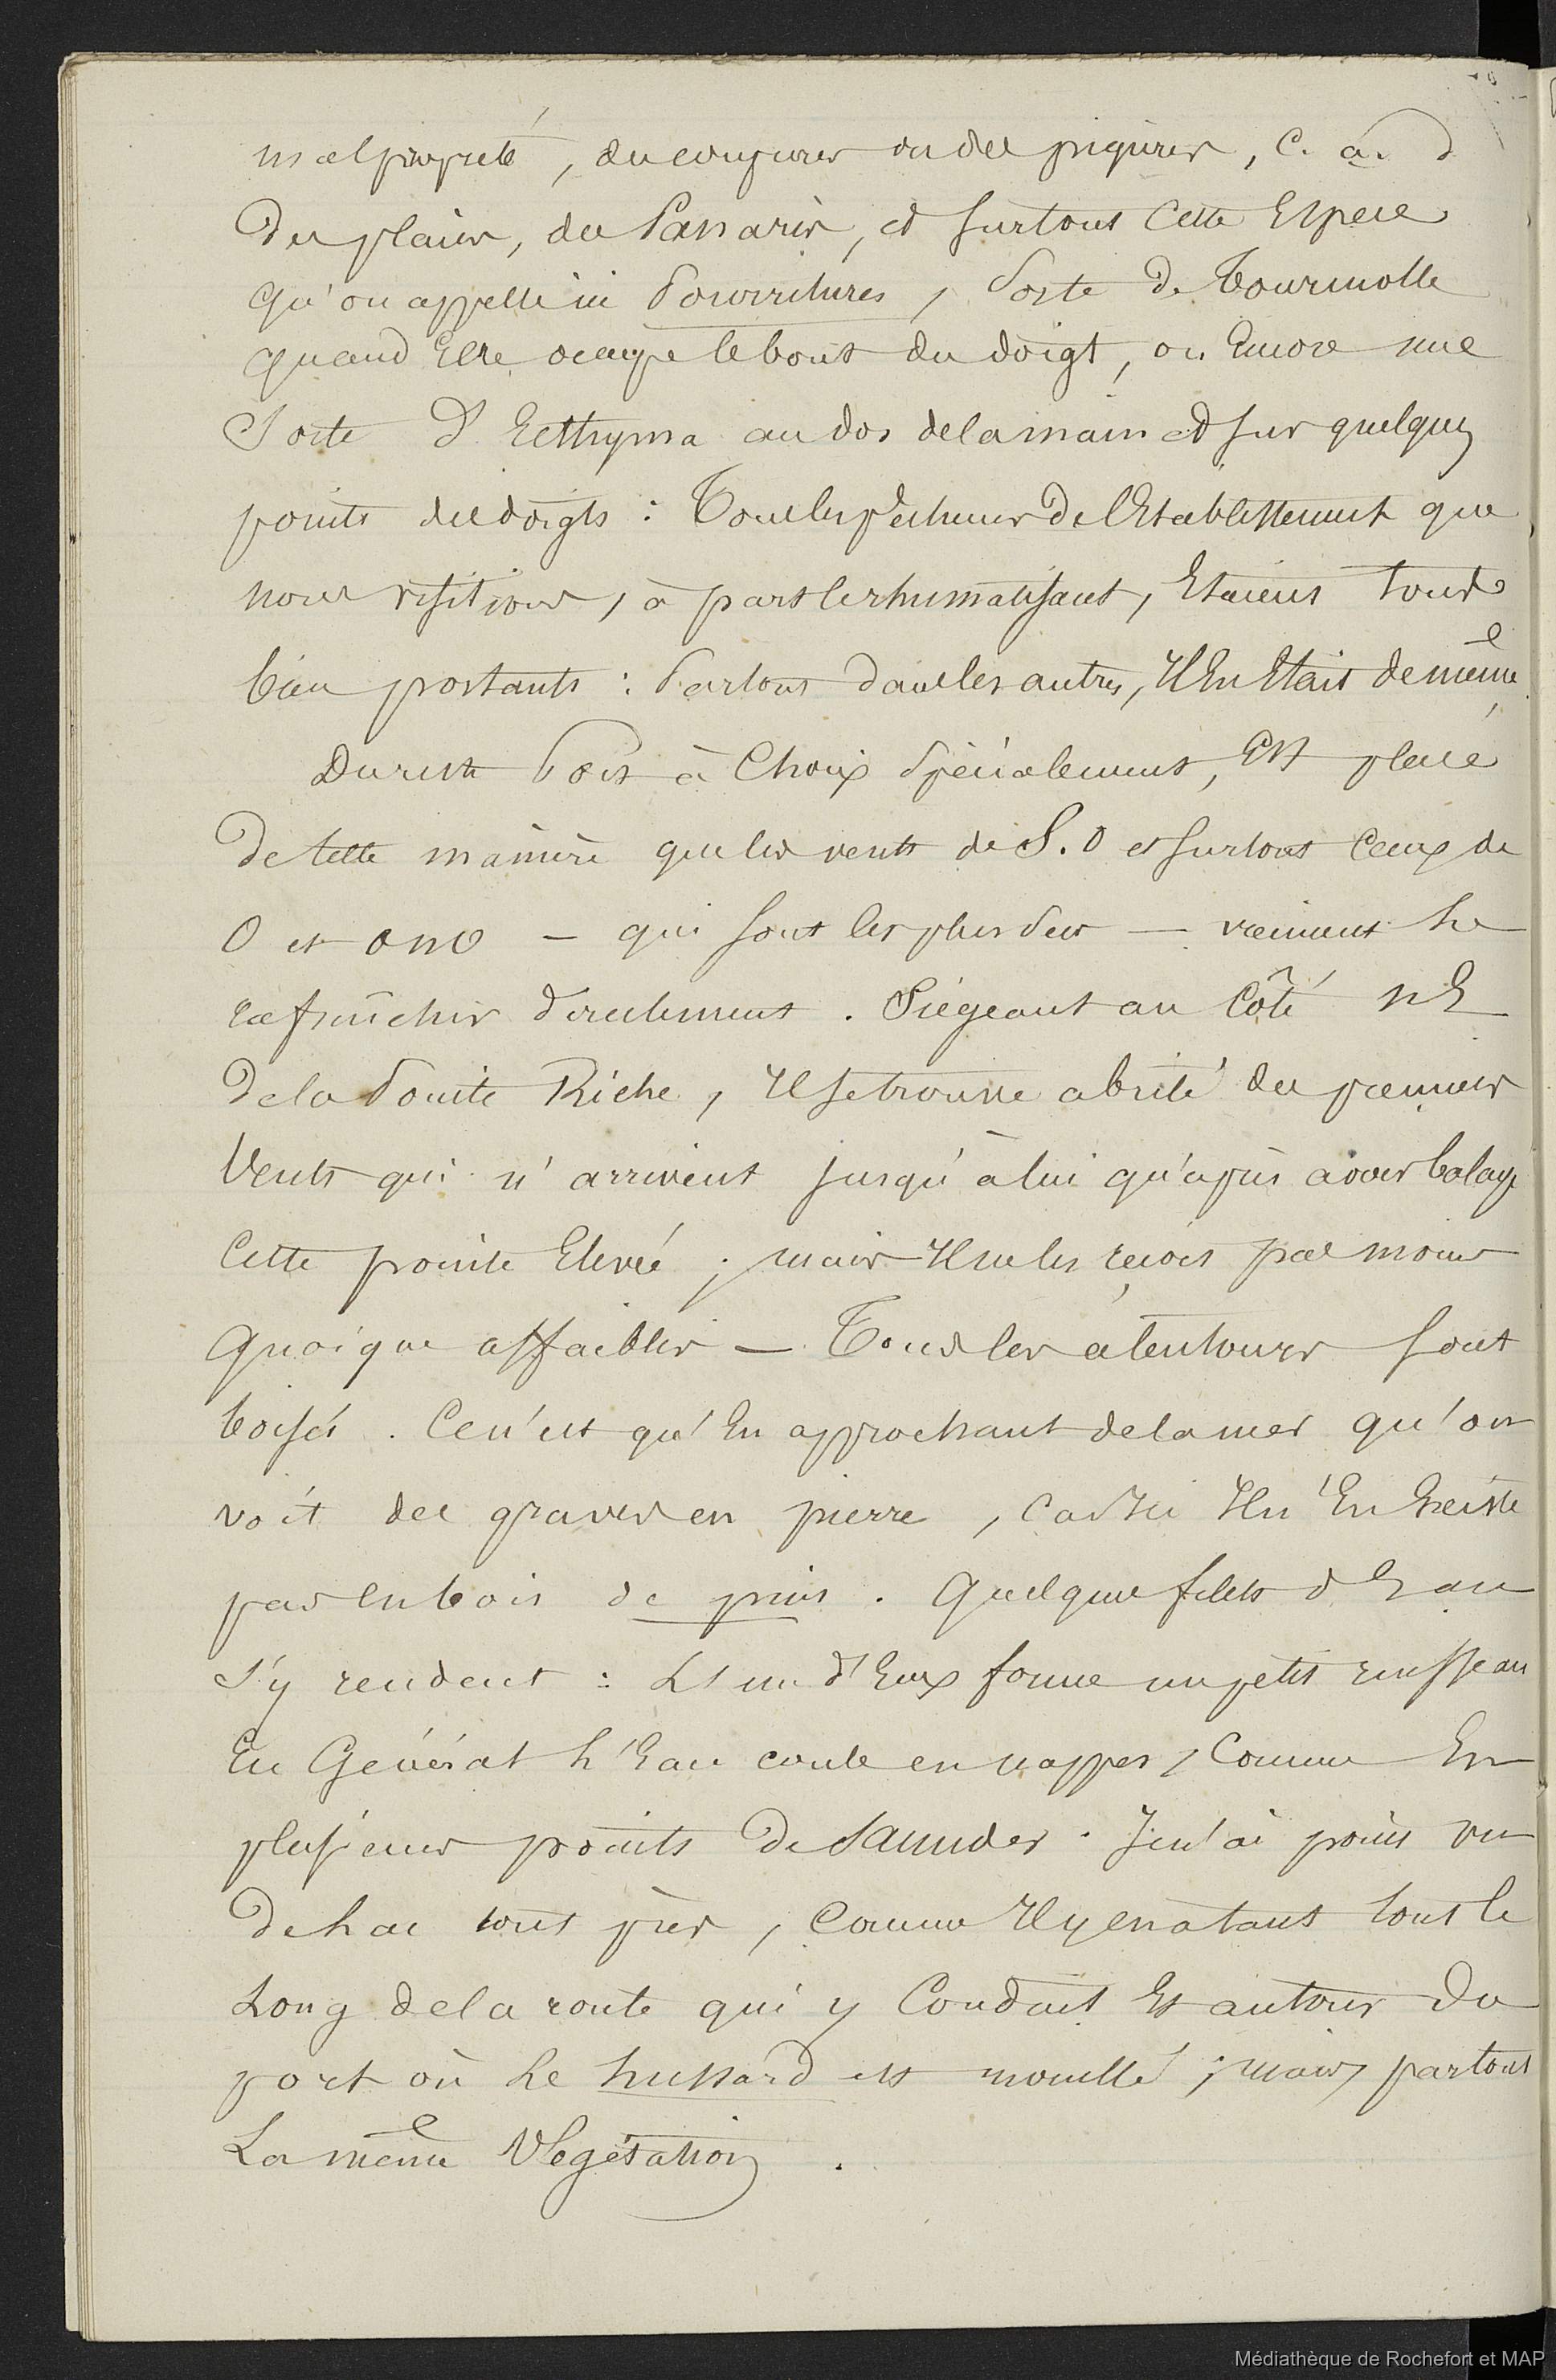 malpropreté, des coupures ou des piqûres, c. à. d
des plaies, des Panaris, et surtout cette Espece
qu'on appelle ici Pourritures, sorte de tourniolle
quand Elle occupe le bout du doigt, ou Encore une
Sorte d'Ecthyma au dos de la main et sur quelques
points des doigts : Tous les pêcheurs de l'Etablissement que
nous visitions, à part le rhumatisant, Etaient tous
bien portants : Partout dans les autres, Il En Etait de même
Du reste Port à Choix spécialement, Est placé
de telle manière que les vents de S.O et surtout ceux de
O et ONO — qui sont les plus secs — viennent le
rafraîchir directement. Siégeant au Côté NE
de la Pointe Riche, Il se trouve abrité des premiers
Vents qui n'arrivent jusqu'à lui qu'après avoir balayé
Cette pointe Elevée ; mais Il ne les reçoit pas moins
quoique affaiblis — Tous les alentours sont
boisés. Ce n'est qu'En approchant de la mer qu'on
voit des graves en pierre, car Ici Il n'En Existe
pas en bois de pins. Quelques filets d'Eau
s'y rendent : L'un d'Eux forme un petit ruisseau
En Général L'Eau coule en nappes, Comme En
plusieurs points de Saunders. Je n'ai point vu
de Lac tout près, Comme Il y en a tant tout le
Long de la route qui y Conduit Et autour du
port où Le hussard est mouillé ; mais partout
La même Végétation.
Médiathèque de Rochefort et MAP